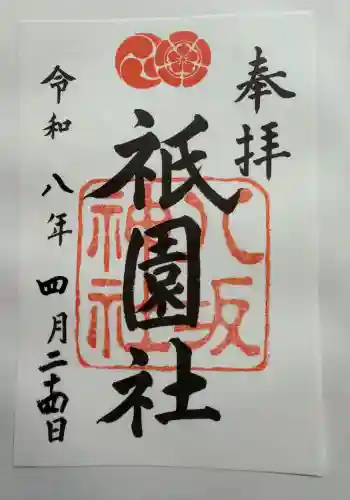 奉拝
祇園社
八坂
神社
令和八年四月二十四日